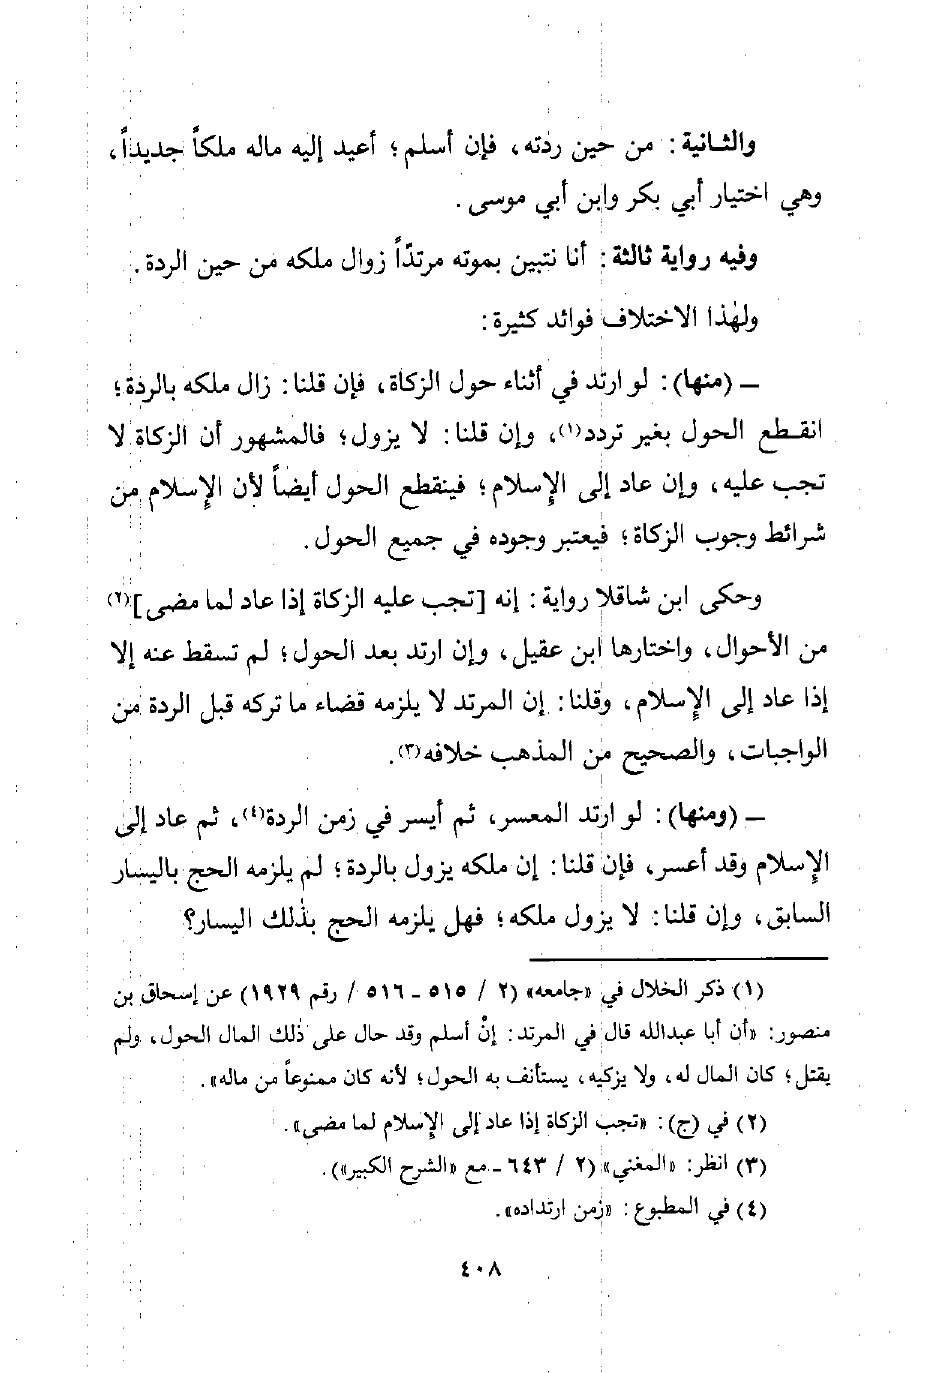 والثـانية : من حين ردته، فإن أسلم؛ أعيد إليه ماله ملكاً جديداً،
وهي اختيار أبي بكر وابن أبي موسى .
وفيه رواية ثالثة : أنا نتبين بموته مرتدّاً زوال ملكه من حين الردة .
ولهٰذا الاختلاف فوائد كثيرة :
ـ (منها): لو ارتد في أثناء حول الزكاة، فإن قلنا: زال ملكه بالردة؛
انقـطع الحول بغير تردد(١)، وإن قلنا: لا يزول؛ فالمشهور أن الزكاة لا
تجب عليه، وإن عاد إلى الإسلام؛ فينقطع الحول أيضاً لأن الإسلام من
شرائط وجوب الزكاة؛ فيعتبر وجوده في جميع الحول.
وحكى ابن شاقلا رواية : إنه [تجب عليه الزكاة إذا عاد لما مضى](٢)
من الأحوال، واختارها ابن عقيل، وإن ارتد بعد الحول؛ لم تسقط عنه إلا
إذا عاد إلى الإسلام، وقلنا: إن المرتد لا يلزمه قضاء ما تركه قبل الردة من
الواجبات، والصحيح من المذهب خلافه(٣).
ـ (ومنها): لو ارتد المعسر، ثم أيسر في زمن الردة(٤)، ثم عاد إلى
الإسلام وقد أعسر، فإن قلنا: إن ملكه يزول بالردة؛ لم يلزمه الحج باليسار
السابق، وإن قلنا: لا يزول ملكه؛ فهل يلزمه الحج بذٰلك اليسار؟
(١) ذكر الخلال في «جامعه» (٢ / ٥١٥ ـ ٥١٦ / رقم ١٩٢٩) عن إسحاق بن
منصور: «أن أبا عبدالله قال في المرتد: إنْ أسلم وقد حال على ذٰلك المال الحول، ولم
يقتل؛ كان المال له، ولا يزكيه، يستأنف به الحول؛ لأنه كان ممنوعاً من ماله».
(٢) في (ج): «تجب الزكاة إذا عاد إلى الإسلام لما مضى».
(٣) انظر: «المغني» (٢ / ٦٤٣ ـ مع «الشرح الكبير»).
(٤) في المطبوع : «زمن ارتداده».
٤٠٨